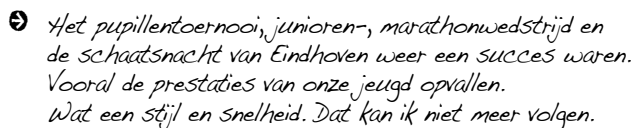 Het pupillentoernooi, junioren-, marathonwedstrijd en
de schaatsnacht van Eindhoven weer een succes waren.
Vooral de prestaties van onze jeugd opvallen.
Wat een stijl en snelheid. Dat kan ik niet meer volgen.